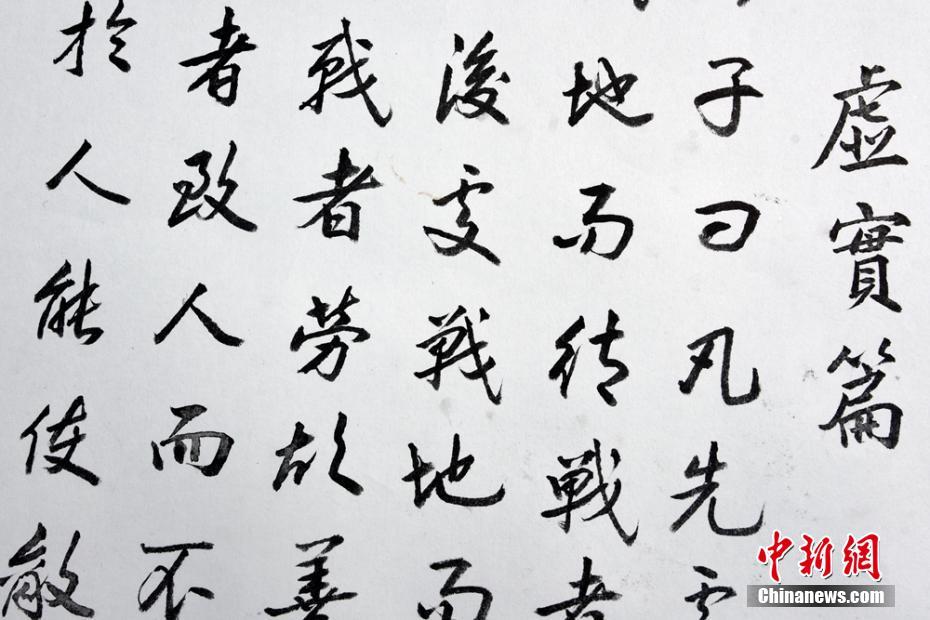 虛實篇
子曰凡先處
地而待戰者
後處戰地而
戰者勞故善
者致人而不
於人能使敵
中新網
Chinanews.com